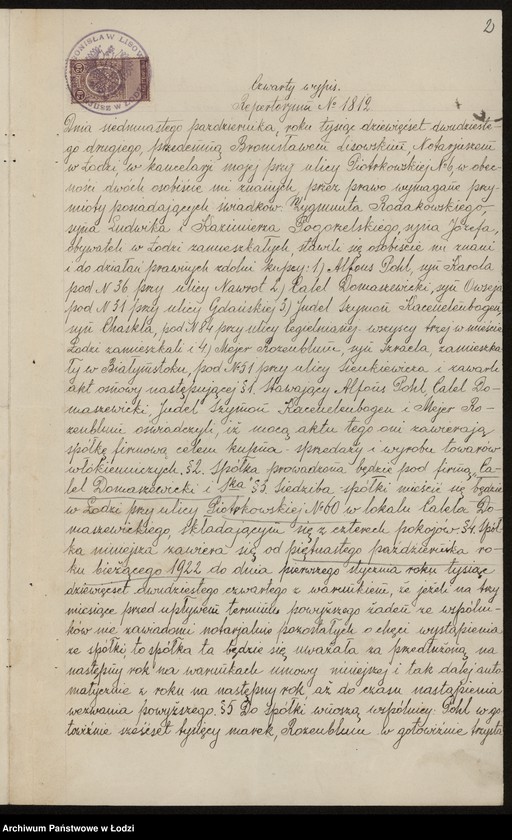 2
BRONISŁAW LISOW
W Ł
Czwarty wypis.
Repertorjum № 1812
Dnia siedmnastego października, roku tysiąc dziewięćset dwudzieste-
go drugiego, przedemną Bronisławem Lisowskim, Notarjuszem
w Łodzi, w kancelarji mojej przy ulicy Piotrkowskiej № 6, w obec-
ności dwóch osobiście mi znanych, przez prawo wymagane przy-
mioty posiadających świadków: Zygmunta Rodakowskiego,
syna Ludwika i Kazimierza Pogorzelskiego, syna Józefa,
obywateli w Łodzi zamieszkałych, stawili się osobiście mi znani
i do działań prawnych zdolni kupcy: 1) Alfons Pohl, syn Karola
pod N 36 przy ulicy Nawrot 2) Calel Domaszewicki, syn Owseja
pod N 31 przy ulicy Gdańskiej 3) Judel Szymon Kacenelenbogen,
syn Chaskla, pod N 84 przy ulicy Cegielnianej. wszyscy trzej w mieście
Łodzi zamieszkali i 4) Mejer Rozenblum, syn Izraela, zamieszka-
ły w Białymstoku, pod № 31 przy ulicy Sienkiewicza i zawarli
akt osnowy następującej: §1. Stawający Alfons Pohl, Calel Do-
maszewicki, Judel Szymon Kacenelenbogen i Mejer Ro-
zenblum oświadczyli, iż mocą aktu tego oni zawierają
spółkę firmową celem kupna-sprzedaży i wyrobu towarów
włókienniczych. §2. Spółka prowadzona będzie pod firmą "Ca-
lel Domaszewicki i S-ka" §3 Siedziba spółki mieścić się będzie
w Łodzi przy ulicy Piotrkowskiej № 60 w lokalu Calela Do-
maszewickiego, składającym się z czterech pokojów. §4. Spół-
ka niniejsza zawiera się od piętnastego października ro-
ku bieżącego 1922 do dnia pierwszego stycznia roku tysiąc
dziewięćset dwudziestego czwartego z warunkiem, że jeżeli na trzy
miesiące przed upływem terminu powyższego żaden ze wspólni-
ków nie zawiadomi notarjalnie pozostałych o chęci wystąpienia
ze spółki, to spółka ta będzie się uważała za przedłużoną na
następny rok na warunkach umowy niniejszej i tak dalej auto-
matycznie z roku na następny rok, aż do czasu nastąpienia
wezwania powyższego. §5 Do spółki wnoszą wspólnicy: Pohl w go-
towiźnie sześćset tysięcy marek, Rozenblum w gotowiźnie trzysta
Archiwum Państwowe w Łodzi